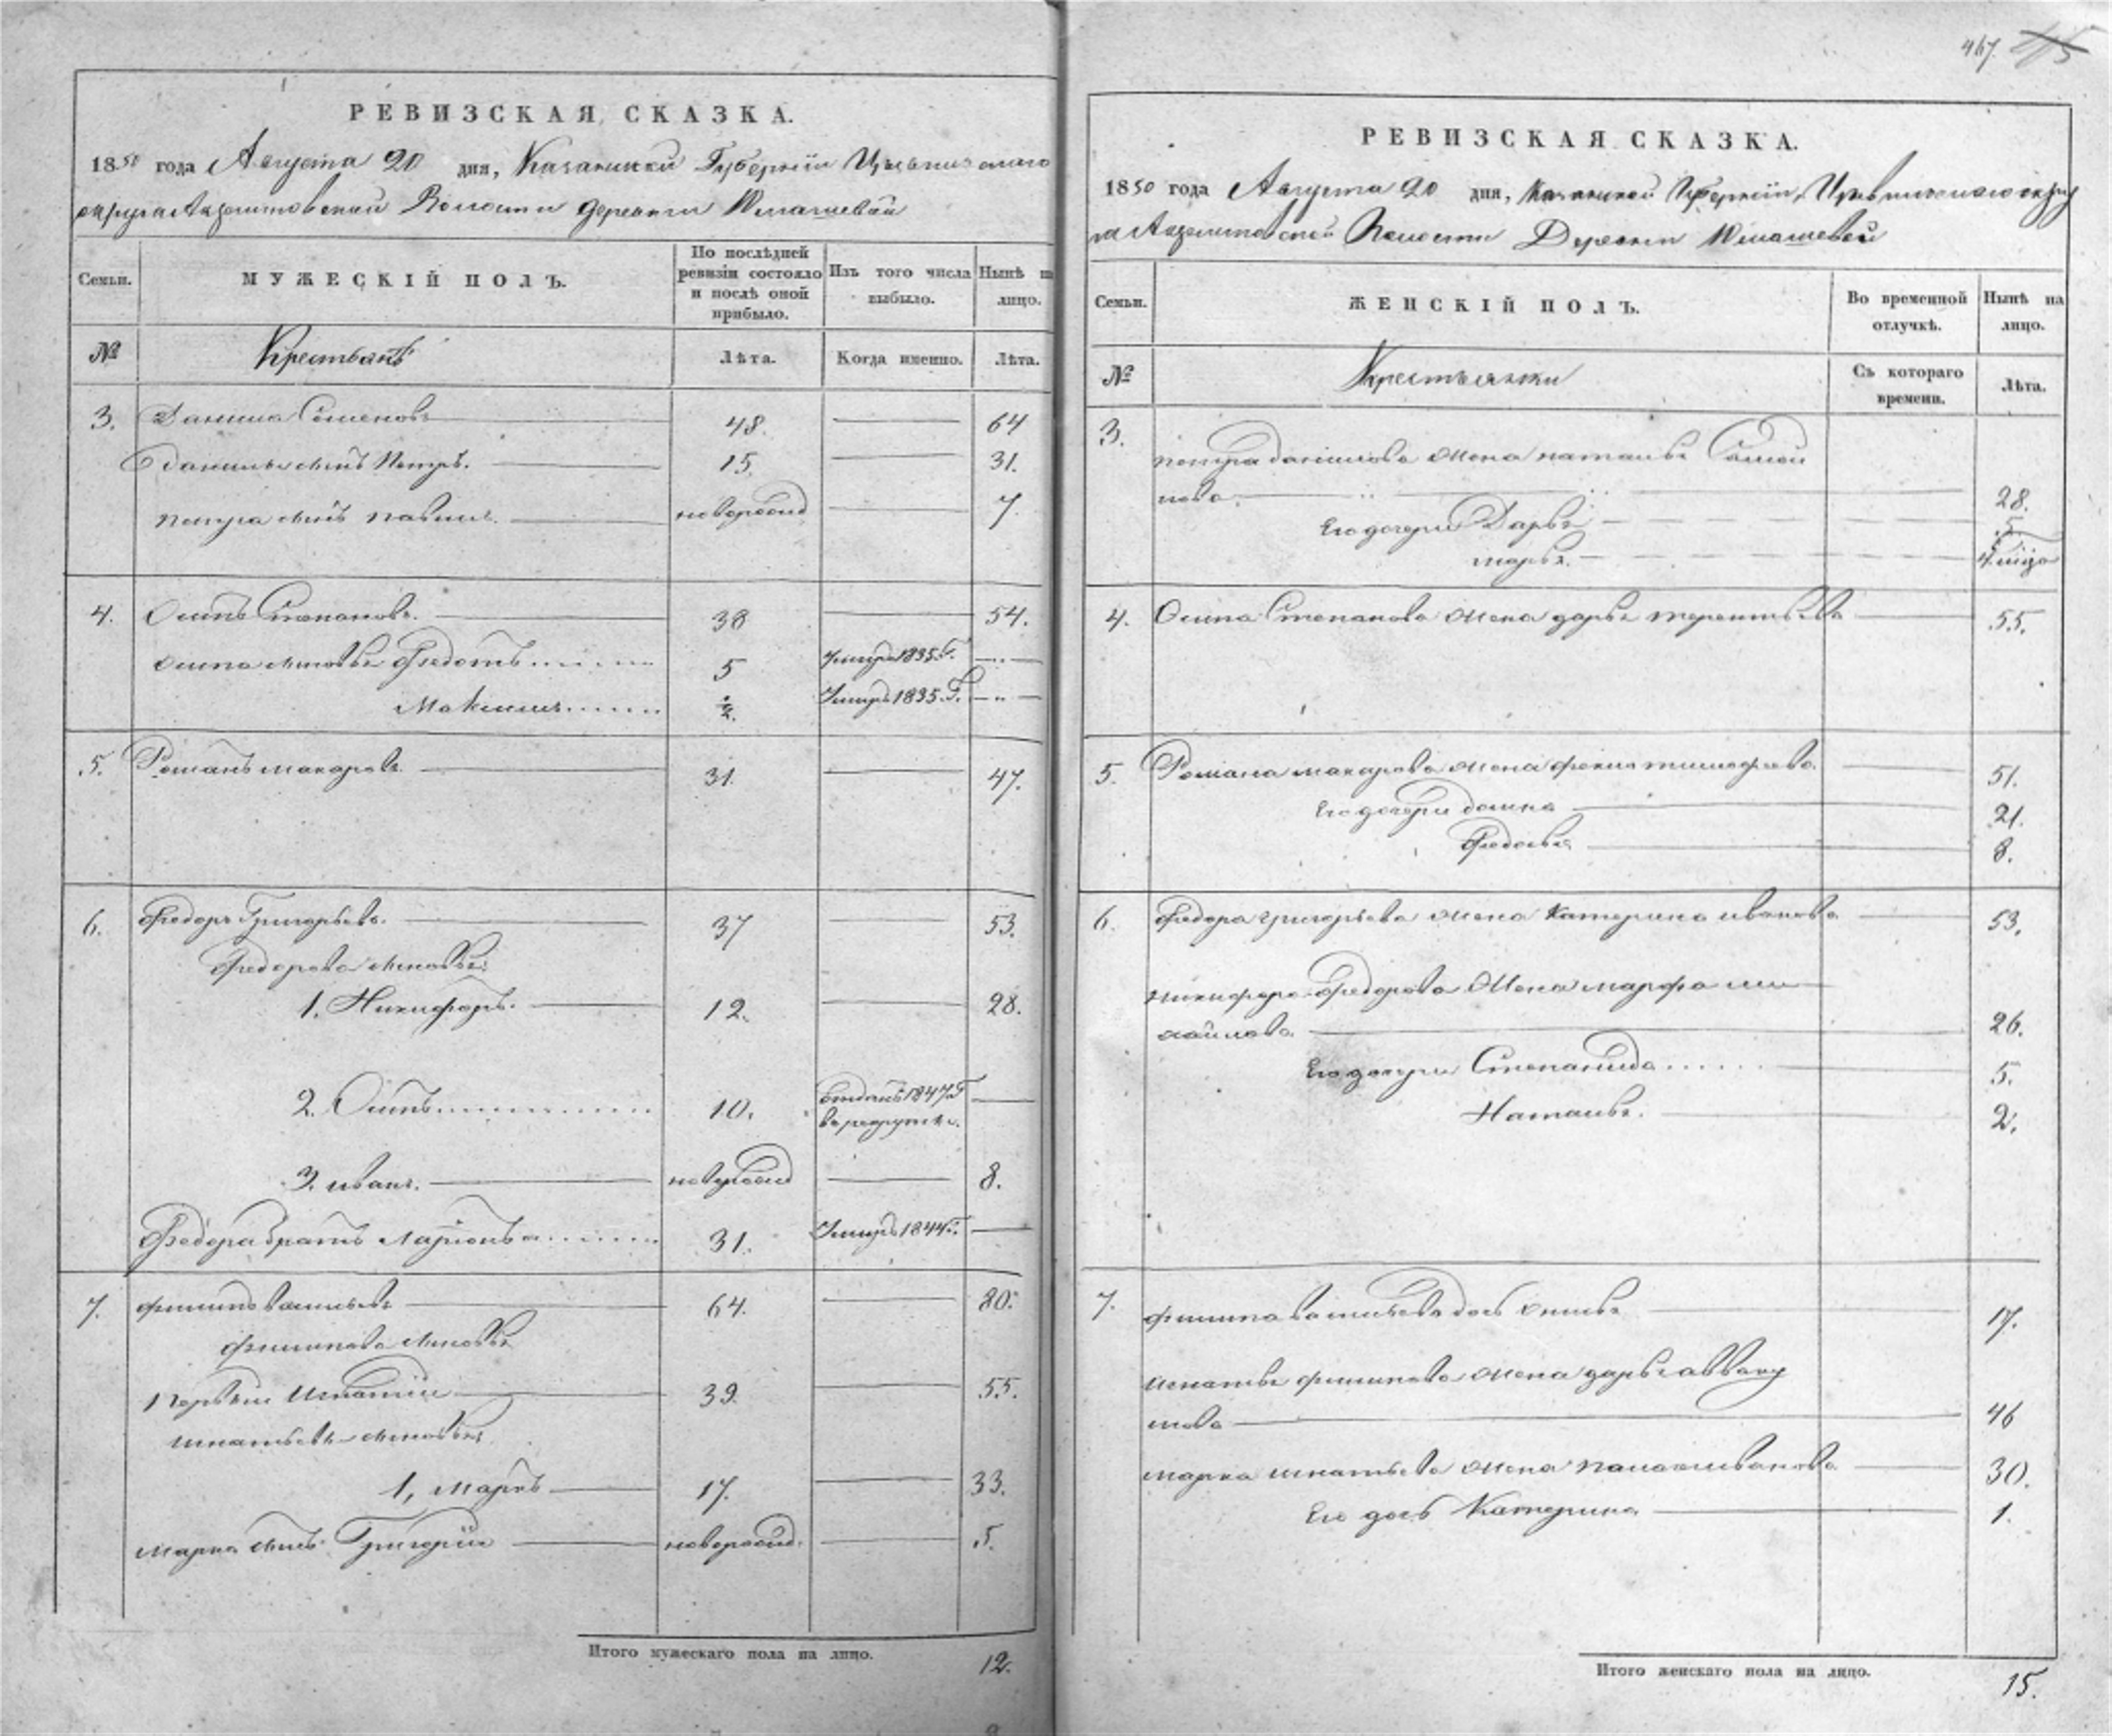 467.
РЕВИЗСКАЯ СКАЗКА.
1850 года Августа 20 дня, Казанской Губернiи Цивильскаго
округа Волости деревни
Семьи.
МУЖЕСКIЙ ПОЛЪ.
По послѣдней ревизiи состояло и послѣ оной прибыло.
Изъ того числа выбыло.
Нынѣ на лицо.
№
Крестьянъ
Лѣта.
Когда именно.
Лѣта.
3. Данила Семеновъ 48. 64
Данилы сынъ Петръ. 15. 31.
Петра сынъ Павелъ. новорожд 7.
4. Осипъ Степановъ. 38 54.
Осипа сыновья Федотъ 5 Умеръ 1835.Г.
Максимъ ½. Умеръ 1835.Г.
5. Романъ Макаровъ 31. 47.
6. Федоръ Григорьевъ. 37 53.
Федорова сыновья:
1. Никифоръ. 12. 28.
2. Осипъ 10. отданъ 1847.Г
въ рекруты.
3. иванъ. новорожд 8.
Федора братъ Ларiонъ 31. Умеръ 1844.Г.
7. филипъ васильевъ 64. 80.
филипова сыновья
1 первый Игнатiй 39. 55.
игнатьевы сыновья
1, Маркъ 17. 33.
марка сынъ Григорiй новорожд. 5.
Итого мужескаго пола на лицо. 12.
РЕВИЗСКАЯ СКАЗКА.
1850 года Августа 20 дня, Казанской Губернiи, Цивильскаго округ
га Волости Деревни
Семьи.
ЖЕНСКIЙ ПОЛЪ.
Во временной отлучкѣ.
Нынѣ на лицо.
№
Крестьянки
Съ котораго времени.
Лѣта.
3.
петра данилова жена наталья Самой
лова 28.
Его дочери Дарья 5
марья.
4. Осипа Степанова жена дарья терентьева 55.
5. Романа макарова жена фекла тимофеева. 51.
Его дочери домна 21.
Федосья 8.
6. Федора григорьева жена Катерина иванова 53.
никифора Федорова Жена марфа ми
хайлова. 26.
Его дочери Степанида 5.
Наталья. 2.
7. филипа васильева дочь 17.
игнатья филипова жена дарья абваку
мова 46
марка игнатьева жена палагея иванова 30.
Его дочь Катерина 1.
Итого женскаго пола на лицо. 15.